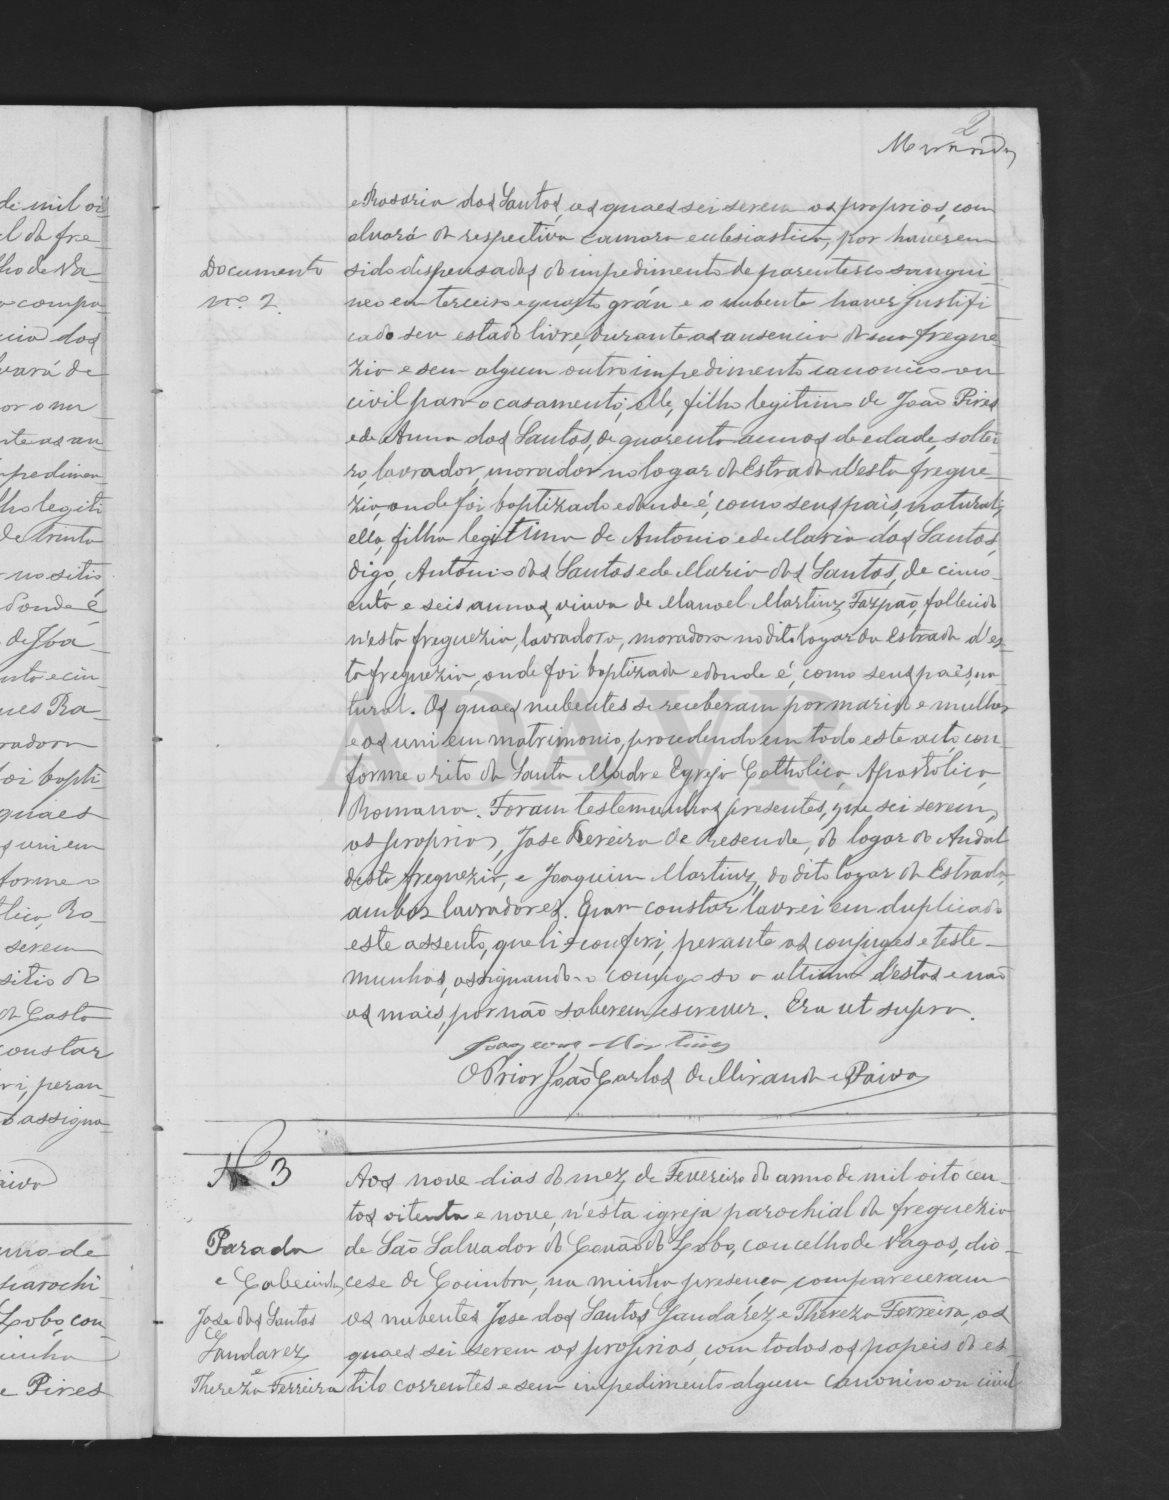 2
Miranda
e Rosaria dos Santos, os quaes sei serem os proprios, com
alvará da respectiva camara ecclesiastica, por haverem
Documento
nº 2.
sido dispensados do impedimento de parentesco sangui-
neo em terceiro e quarto gráu e o nubente haver justifi
cado seu estado livre, durante as ausencia da sua fregue-
zia e sem algum outro impedimento canonico ou
civil para o casamento; elle, filho legitimo de João Pires
e de Anna dos Santos, de quarenta annos de edade, soltei-
ro, lavrador, morador no logar da Estrada d'esta fregue-
zia, onde foi baptizado e donde é, como seus paes, natural;
ella, filha legitima de Antonio e de Maria dos Santos,
digo, Antonio dos Santos e de Maria dos Santos, de cinco-
enta e seis annos, viuva de Manoel Martins Farpão, fallecido
n'esta freguezia, lavradora, moradora no dito logar da Estrada d'es-
ta freguezia, onde foi baptizada e donde é, como seus paes, na-
tural. Os quaes nubentes se receberam por marido e mulher
e os uni em matrimonio, procedendo em todo este acto con-
forme o rito da Santa Madre Egreja Catholica, Apostolica,
Romana. Foram testemunhas presentes, que sei serem,
os proprios, Jose Pereira de Resende, do logar do Andal
desta freguezia, e Joaquim Martins, do dito logar da Estrada,
ambos lavradores. E para constar lavrei em duplicado
este assento, que li e conferi, perante os conjuges e teste-
munhas, assignando-o comigo so o ultimo d'estas e não
os mais, por não saberem escrever. Era ut supra.
Joaquim Martins
O Prior João Carlos de Miranda e Paiva
Nº 3
Parada
e Cabecinha
Jose dos Santos
Jandarez
e
Thereza Ferreira
Aos nove dias do mez de Fevereiro do anno de mil oito cen-
tos oitenta e nove, n'esta igreja parochial da freguezia
de São Salvador do Covão do Lobo, concelho de Vagos, dio-
cese de Coimbra, na minha presença, compareceram
os nubentes Jose dos Santos Jandarez e Thereza Ferreira, os
quaes sei serem os proprios, com todos os papeis do es-
tilo correntes e sem impedimento algum canonico ou civil
ADAVR